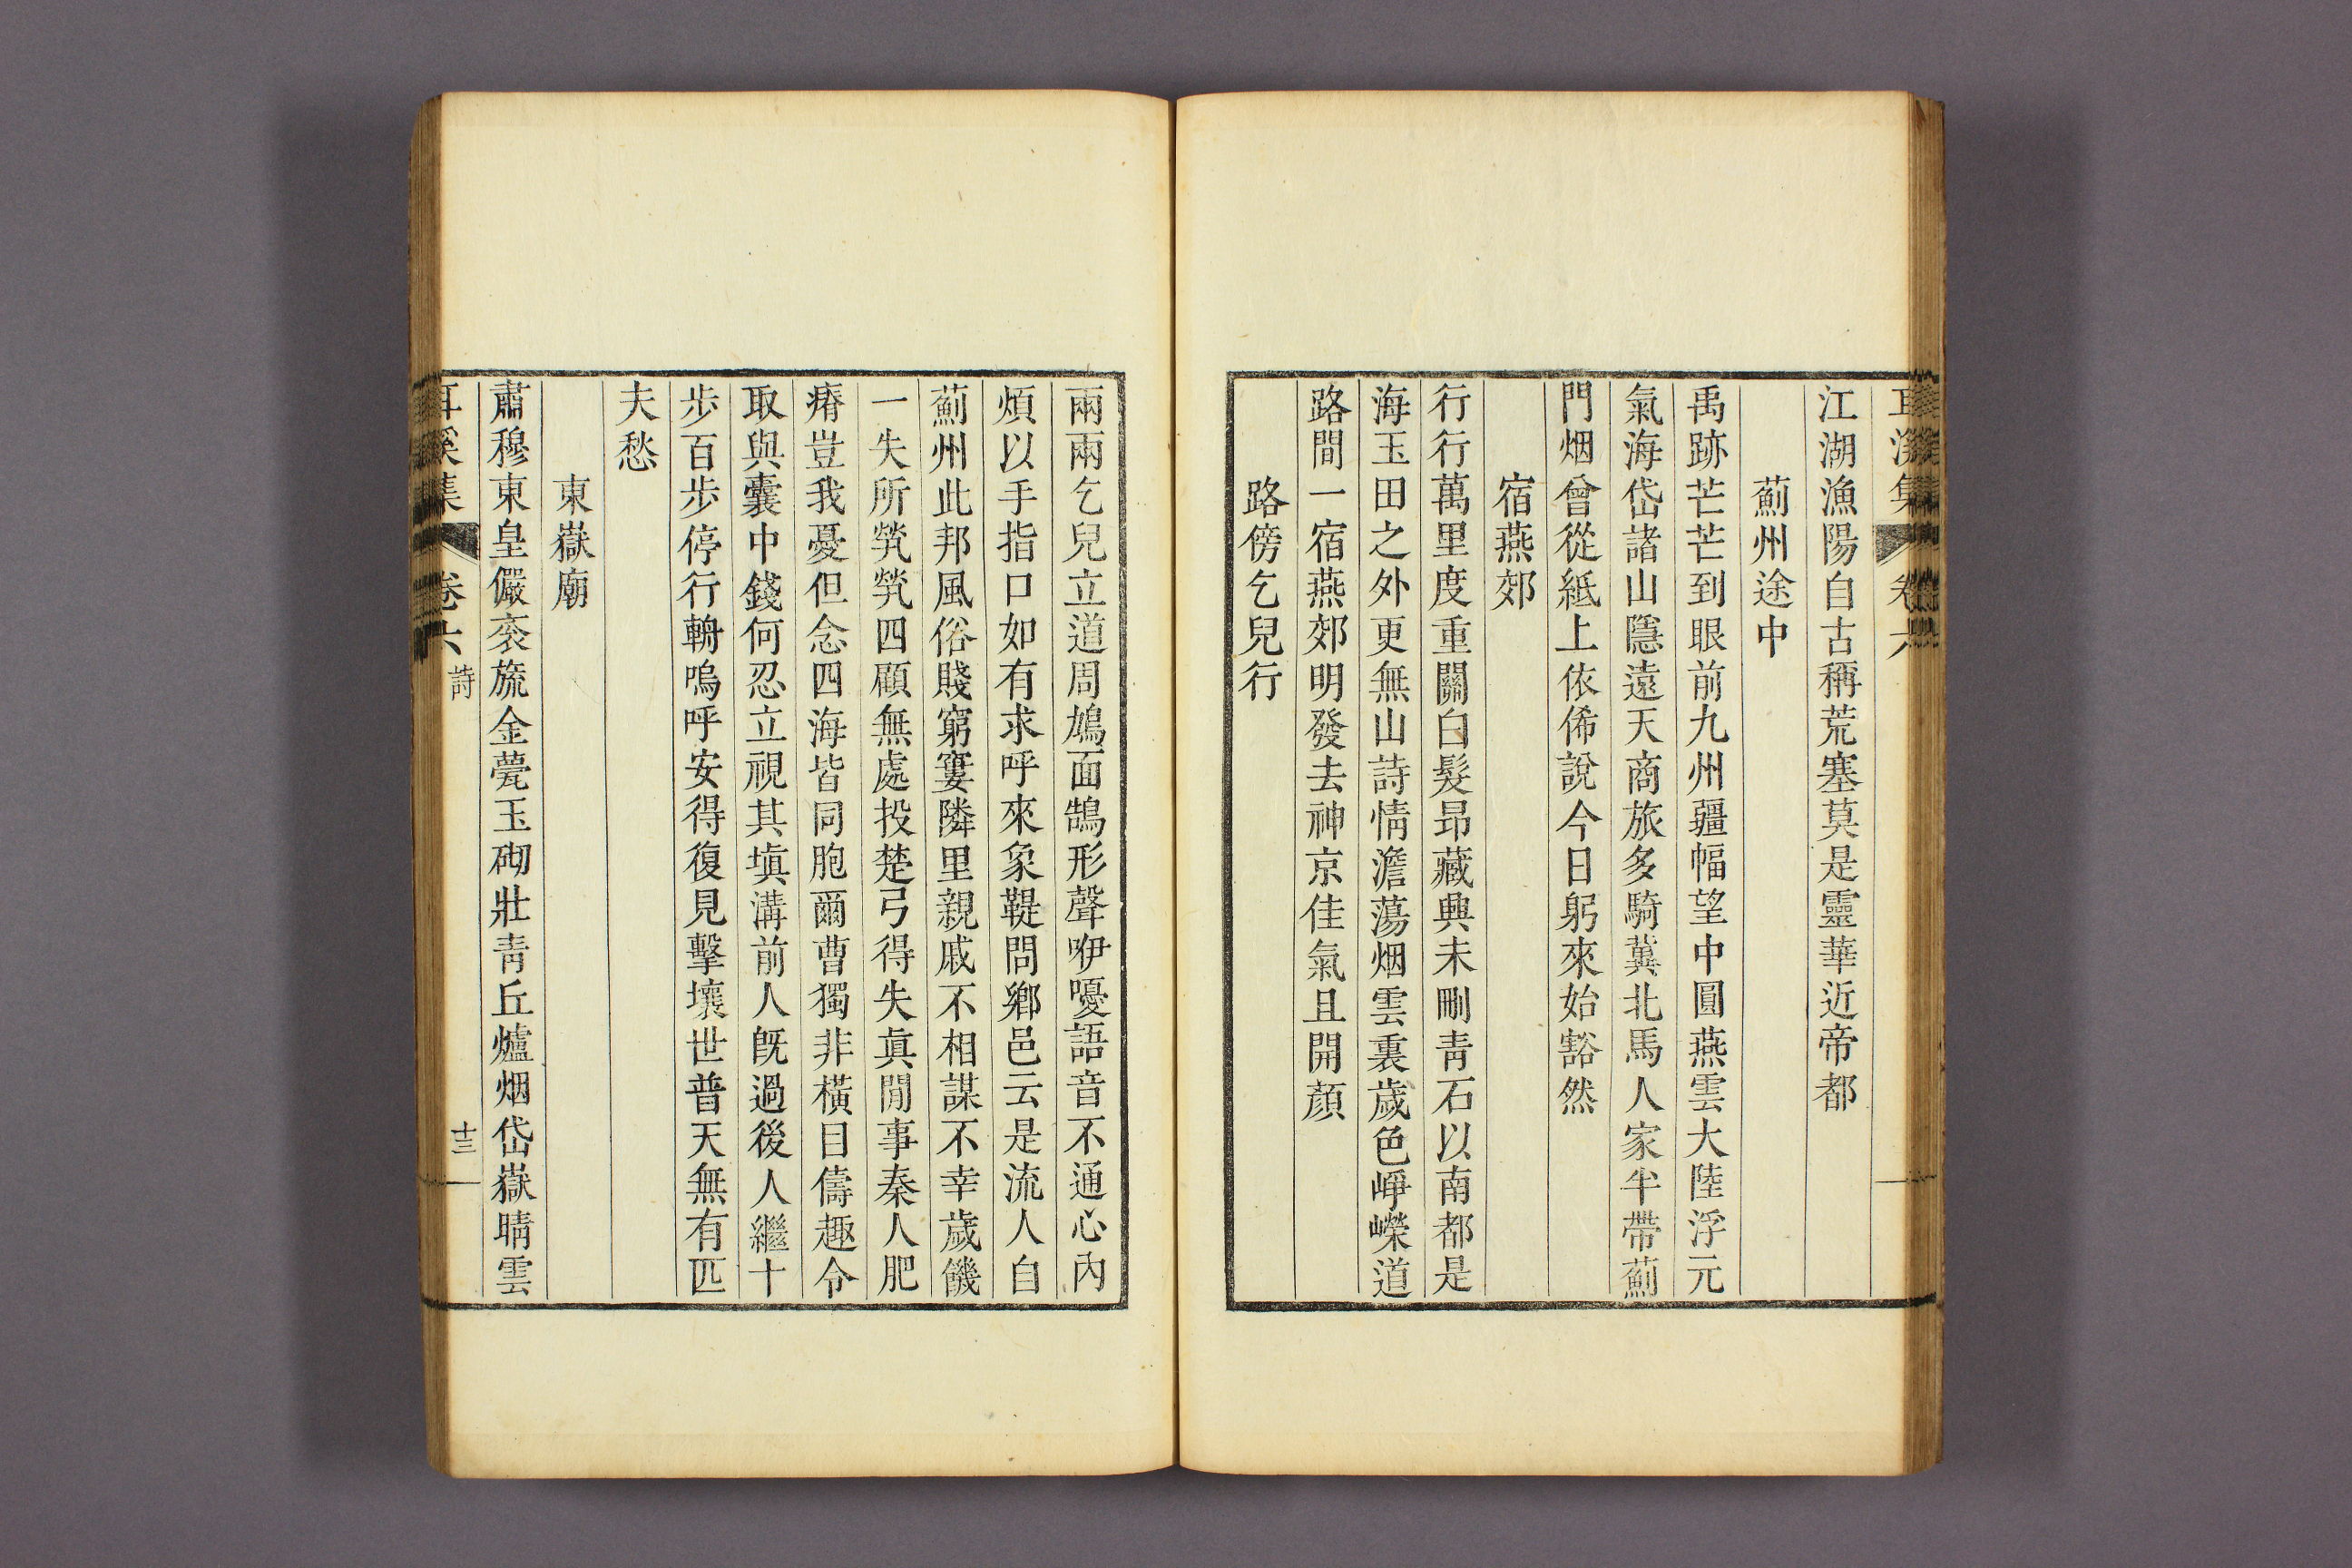 耳溪集 卷六
江湖漁陽自古稱荒塞莫是靈華近帝都
薊州途中
禹跡芒芒到眼前九州疆幅望中圓燕雲大陸浮元
氣海岱諸山隱遠天商旅多騎冀北馬人家半帶薊
門烟曾從紙上依俙說今日躬來始豁然
宿燕郊
行行萬里度重關白髮昂藏興未刪青石以南都是
海玉田之外更無山詩情澹蕩烟雲裏歲色崢嶸道
路間一宿燕郊明發去神京佳氣且開顏
路傍乞兒行
兩兩乞兒立道周鳩面鵠形聲咿嚘語音不通心內
煩以手指口如有求呼來象鞮問鄉邑云是流人自
薊州此邦風俗賤窮窶隣里親戚不相謀不幸歲饑
一失所煢煢四顧無處投楚弓得失眞閒事秦人肥
瘠豈我憂但念四海皆同胞爾曹獨非橫目儔趣令
取與囊中錢何忍立視其塡溝前人旣過後人繼十
步百步停行輈嗚呼安得復見擊壤世普天無有匹
夫愁
東嶽廟
肅穆東皇儼袞旒金甍玉砌壯靑丘爐烟岱嶽晴雲
耳溪集 卷六 詩 十三